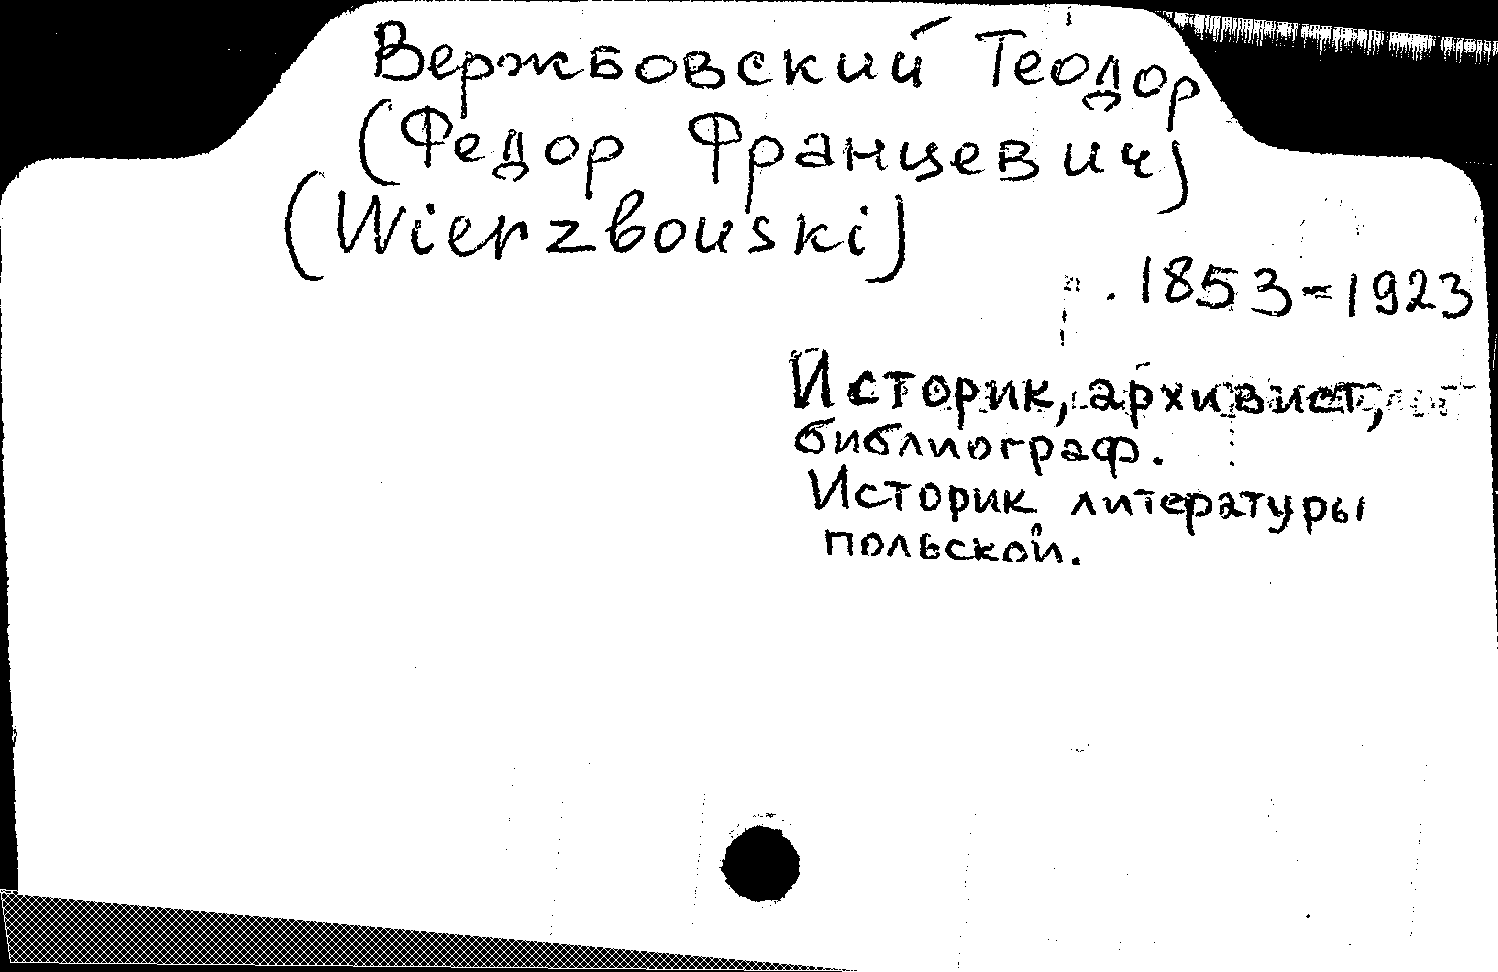 Вержбовский Теодор
(Федор Францевич)
(Wierzbouski)
. 1853-1923
Историк, архивист,
библиограф.
Историк литературы
польской.